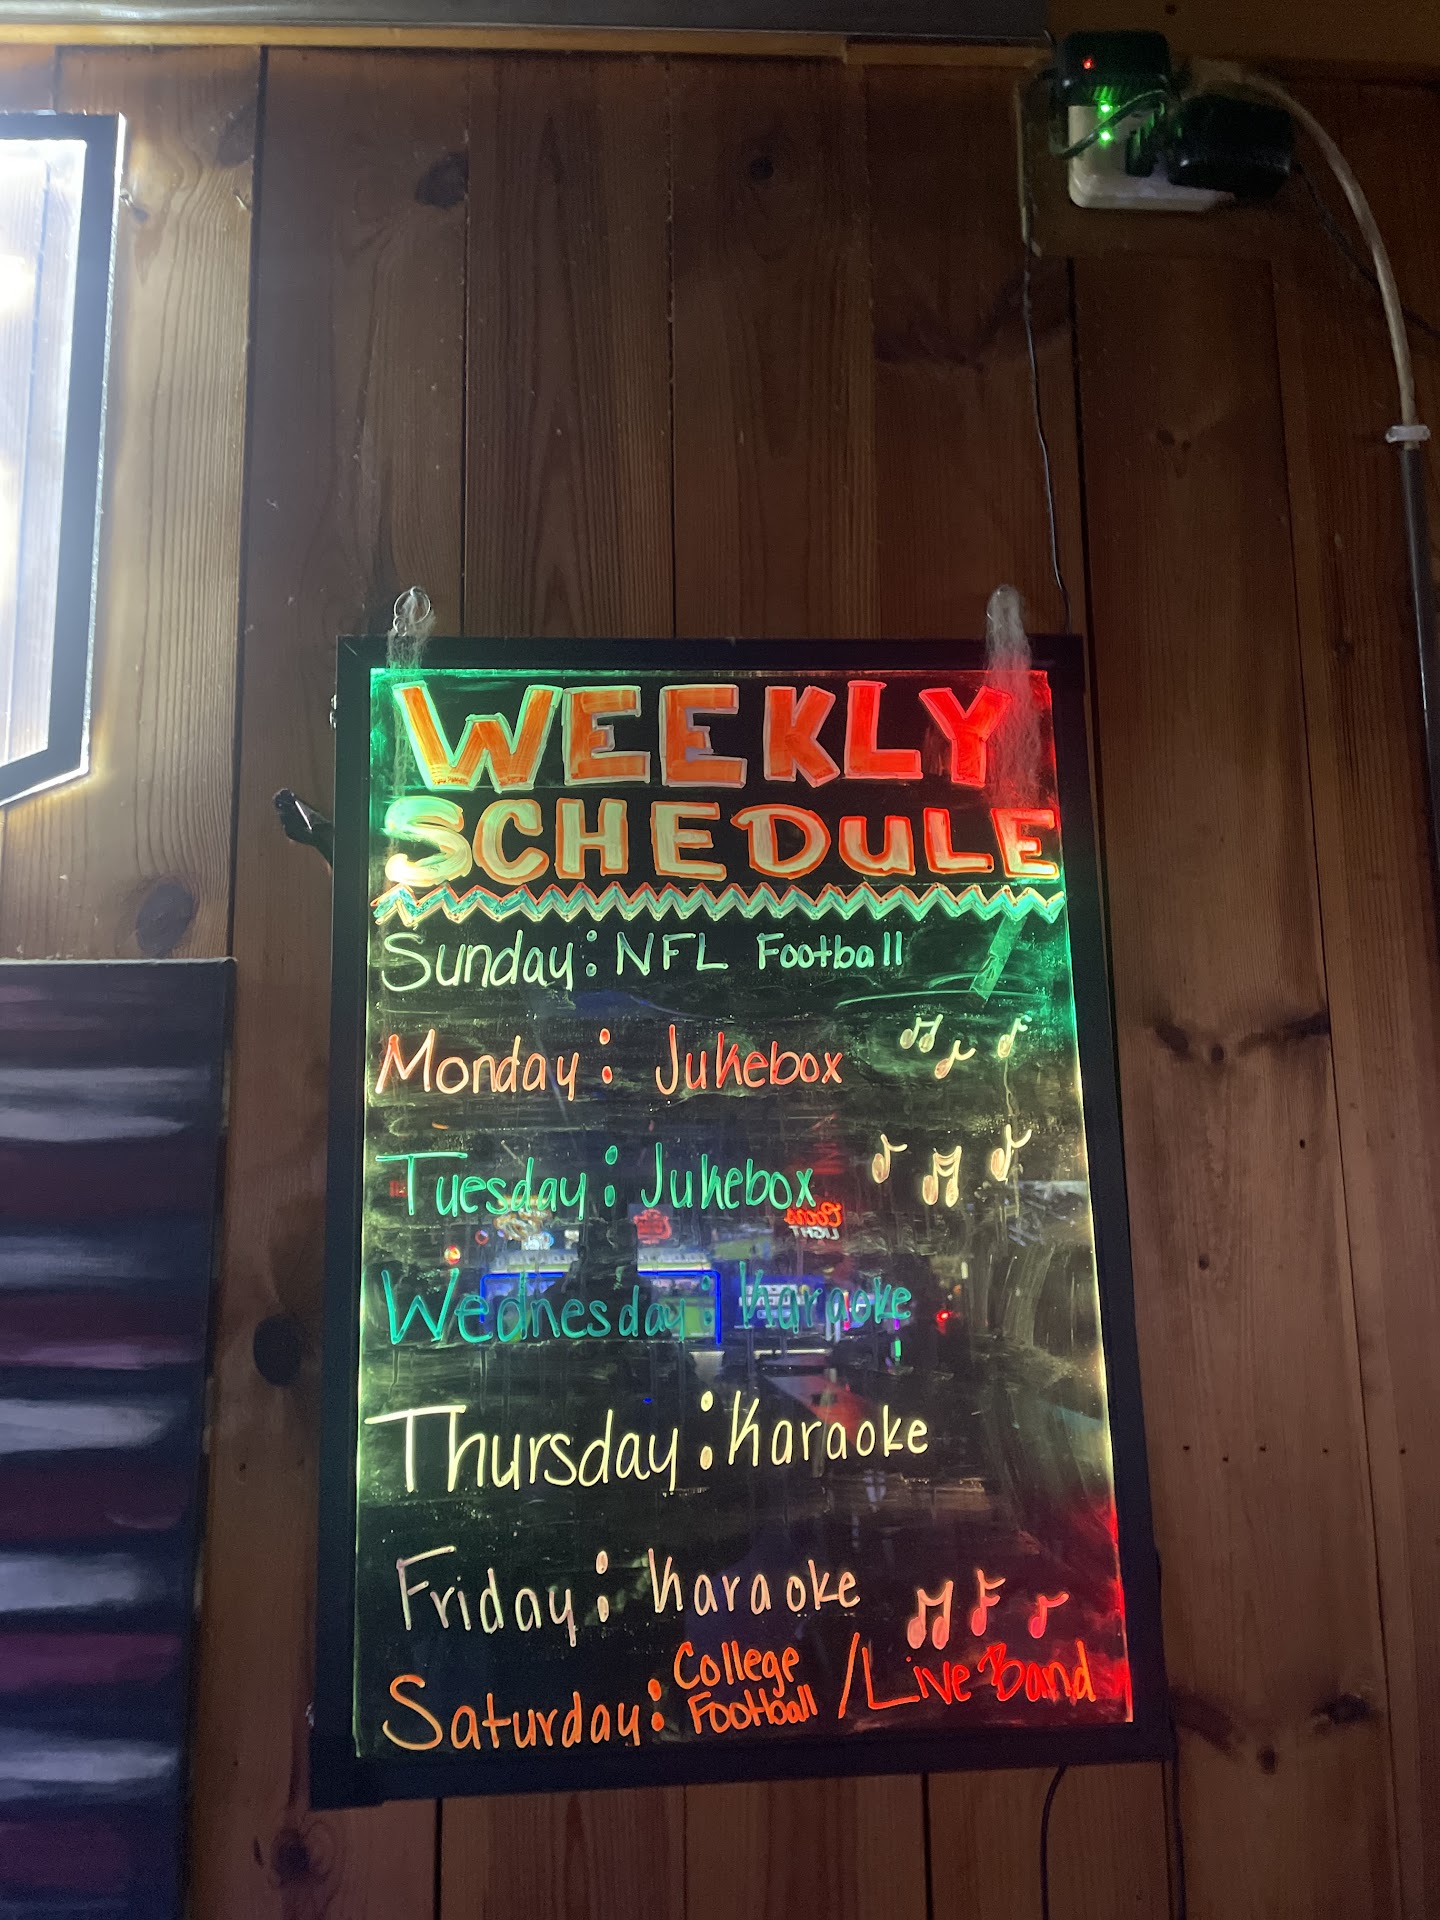 WEEKLY
SCHEDULE
Sunday: NFL Football
Monday: Jukebox
Tuesday: Jukebox
Wednesday: Karaoke
Thursday: Karaoke
Friday: Karaoke
Saturday: College Football / Live Band
Coors
LIGHT